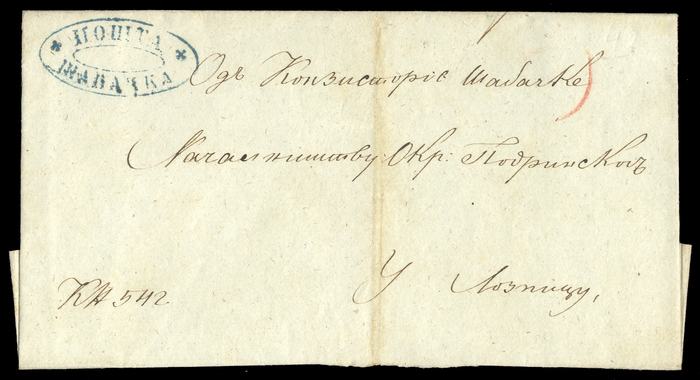 ПОШТА
ШАБАЧКА
Одъ Конзисторіе Шабачке
Началничтву Окр: Подринскогъ
У Лозницу,
КН 542